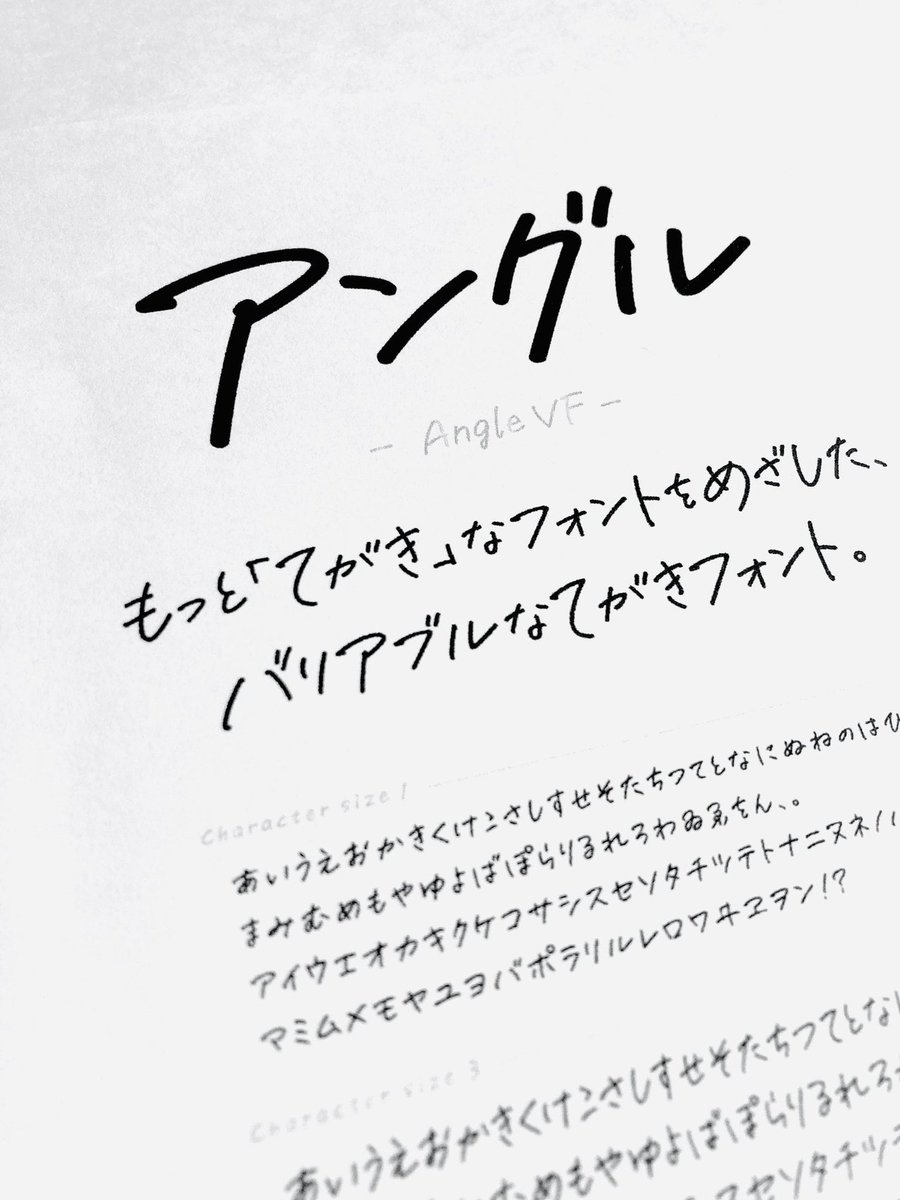 アングル
- Angle VF -
もっと「てがき」なフォントをめざした、
バリアブルなてがきフォント。
Character size 1
あいうえおかきくけこさしすせそたちつてとなにぬねのはひ
まみむめもやゆよばぽらりるれろわゐゑをん、。
アイウエオカキクケコサシスセソタチツテトナニヌネノハ
マミムメモヤユヨバポラリルレロワヰヱヲン!?
Character size 3
あいうえおかきくけこさしすせそたちつてとなに
むめもやゆよばぽらりるれろ
セソタチツ